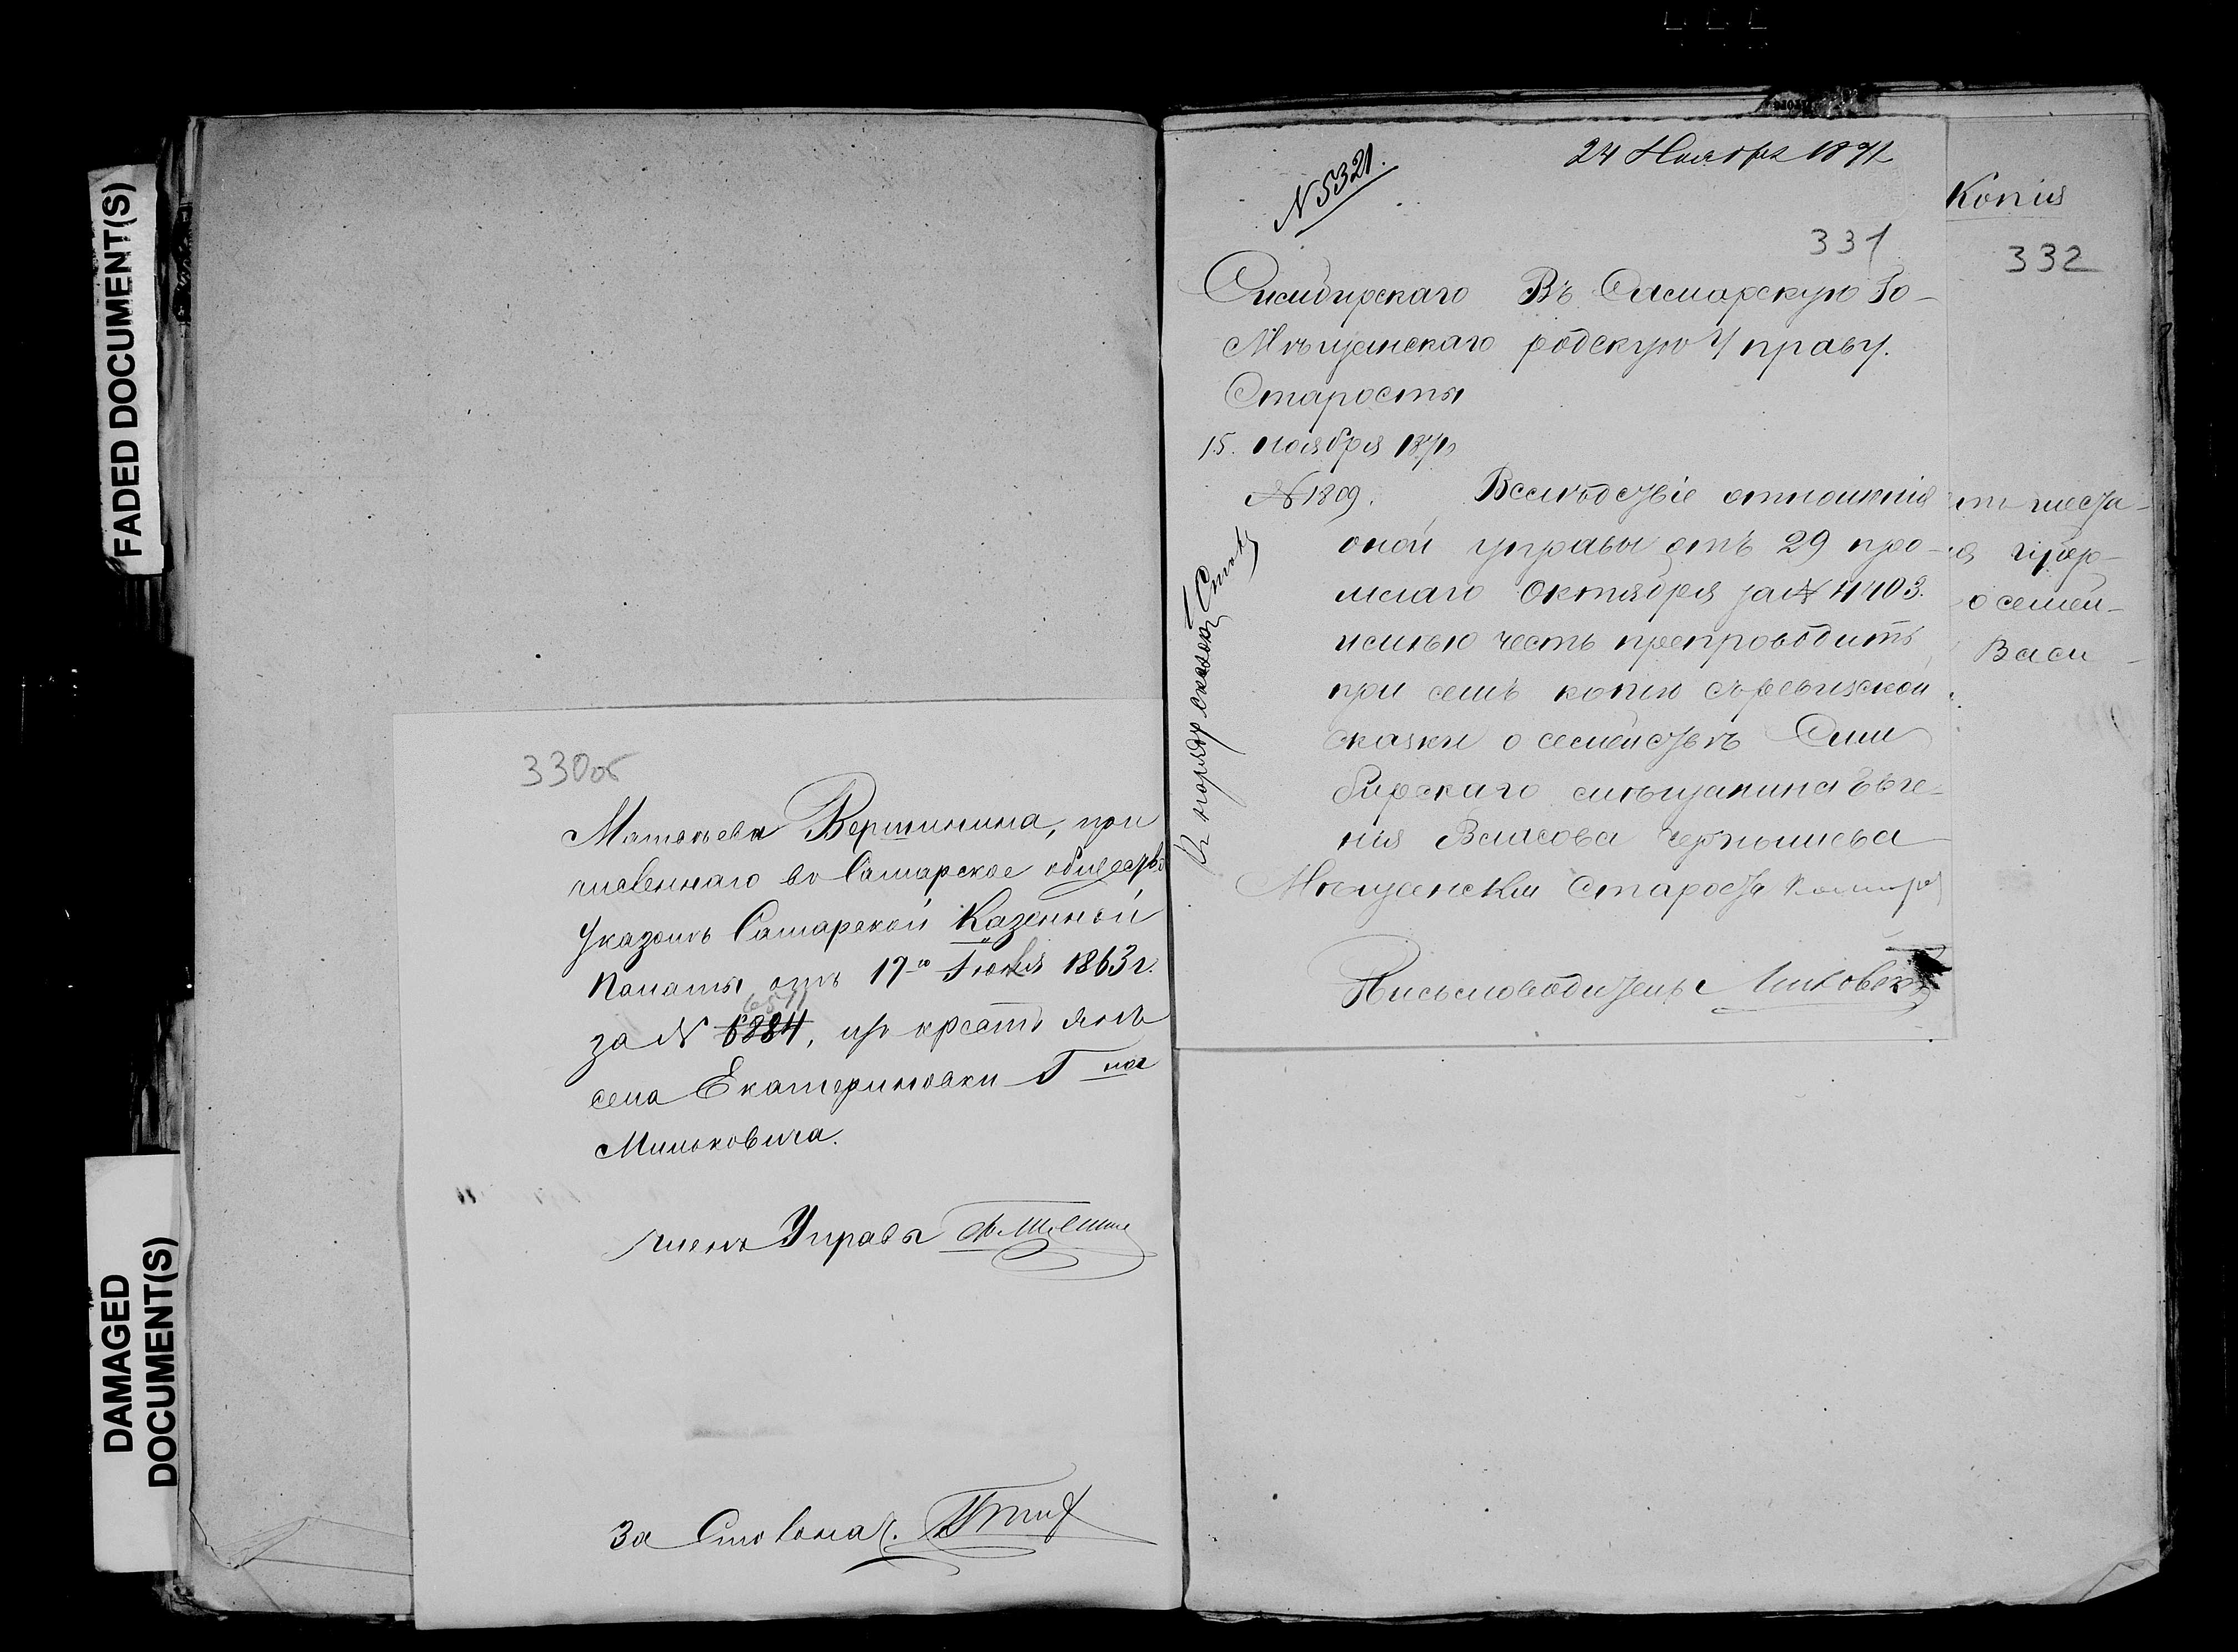 FADED DOCUMENT(S)
DAMAGED
DOCUMENT(S)
330об
Матвеева Вершинина, при
численнаго въ Самарское общество
Указомъ Самарской Казенной
Палаты отъ 17го Іюля 1863 г.
6511
за № 6884, изъ крестьянъ
села Екатериновки Г на
Мильковича.
Членъ Управы
За Столонач.
24 Ноября 1871
N 5321.
331
Симбирскаго
Мѣщанскаго
Старосты
15. ноября 1871
№ 1809.
Въ Самарскую Го-
родскую Управу.
Вслѣдствіе отношенія
оной управы отъ 29 про-
шлаго Октября за № 4403.
имѣю честь препроводить
при семъ копію съ ревизской
сказки о семействѣ Сим
бирскаго мѣщанина Евге-
нія Власова Чернышева
Мѣщанскій Староста
Письмоводитель
Копія
332
о семей-
Васи-